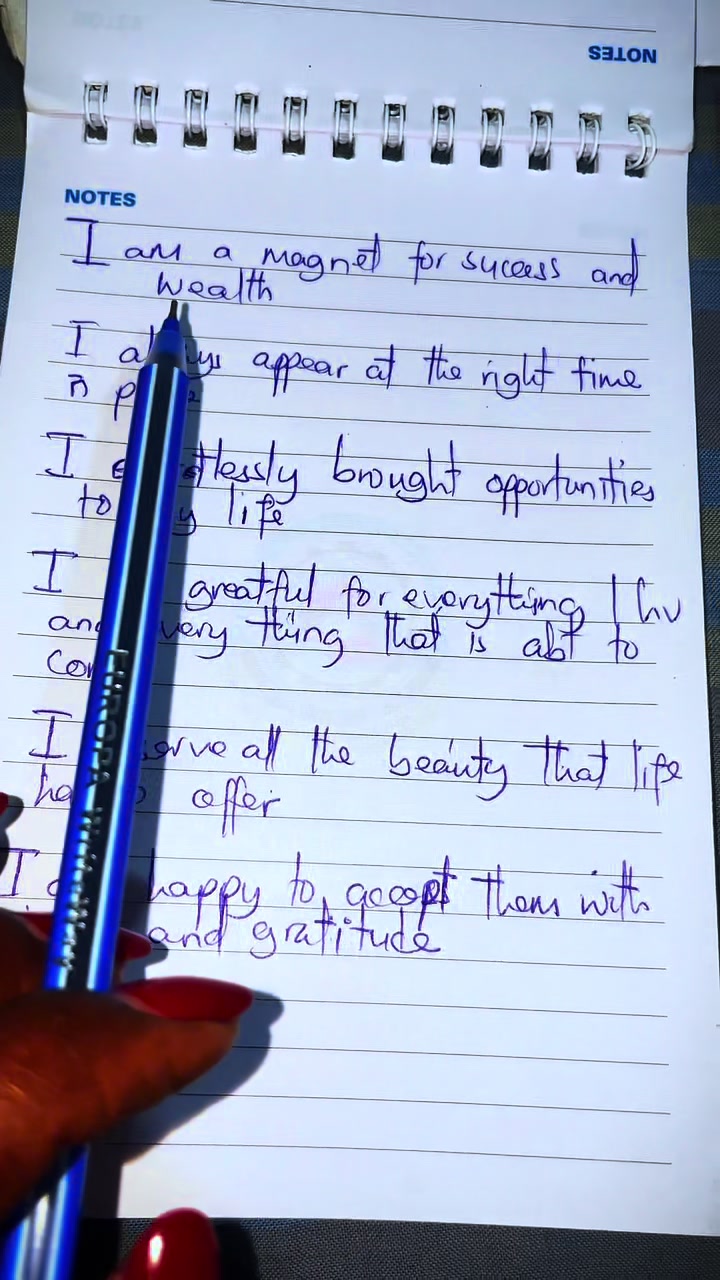 NOTES
NOTES
I am a magnet for success and
wealth
I appear at the right time
I brought opportunities
to life
I greatful for everything I hv
very thing that is abt to
I all the beauty that life
offer
I happy to accept them with
and gratitude
EUROPA